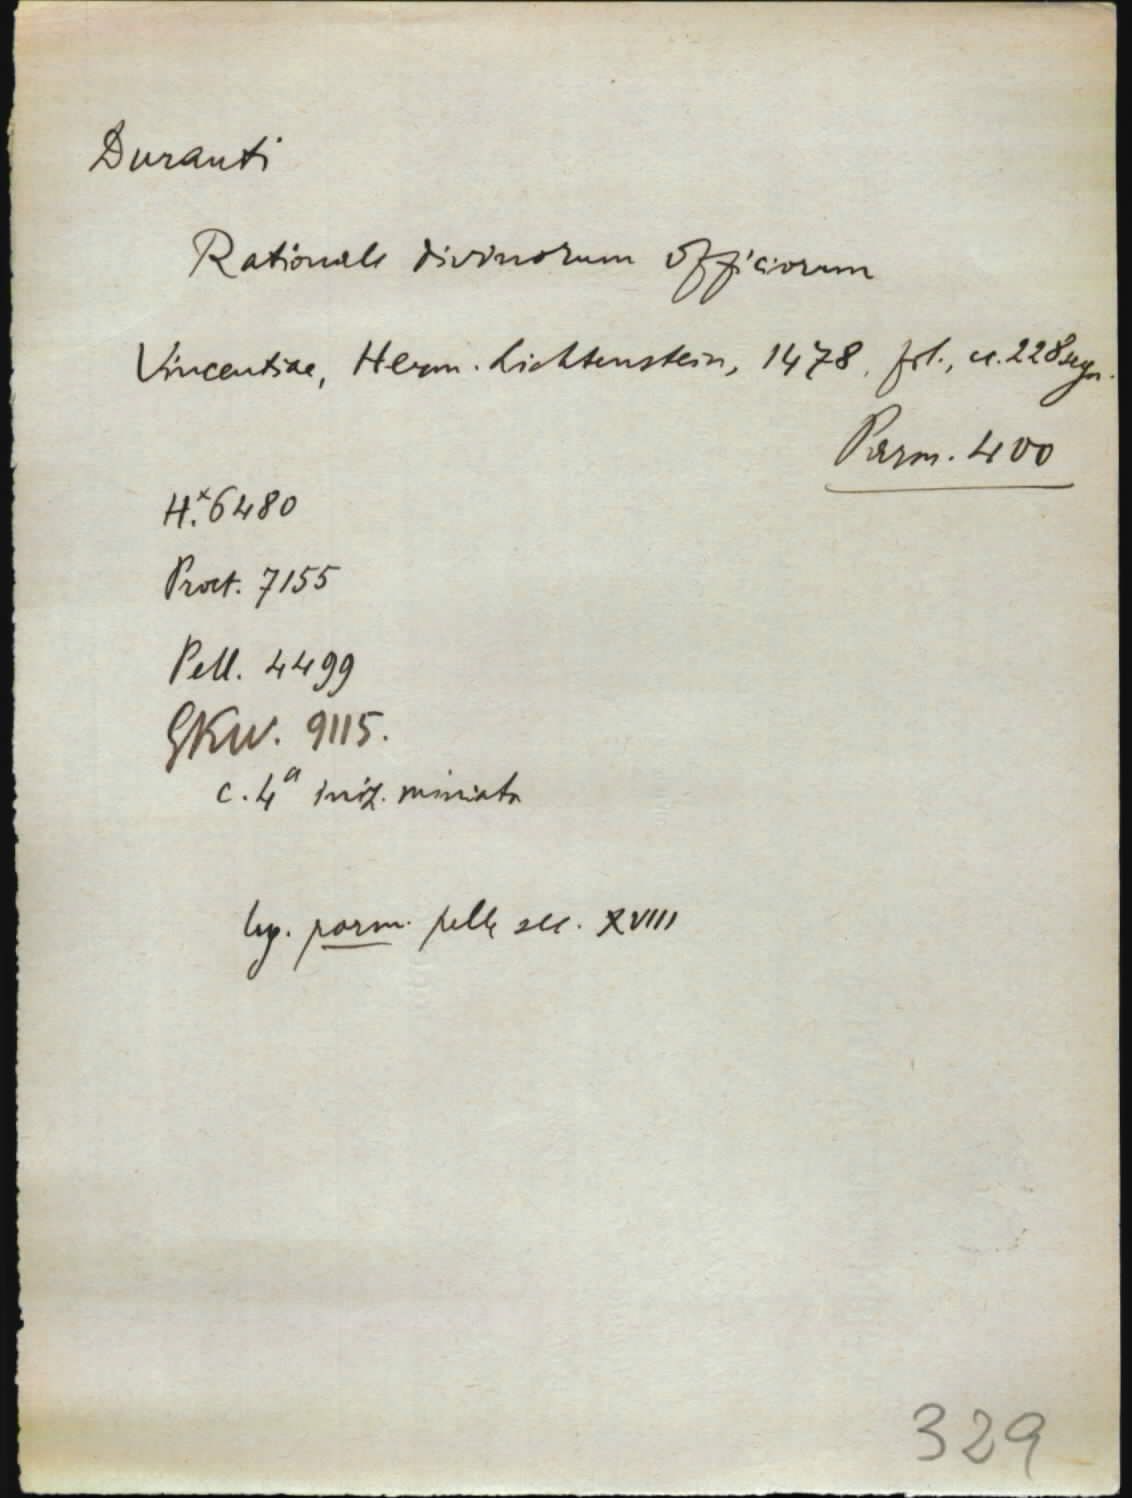 Duranti
Rationale divinorum officiorum
Vincentiae, Herm. Lichtenstein, 1478. fol., cc. 228 segn.
Parm. 400
H.x6480
Proct. 7155
Pell. 4499
GKW. 9115.
c. 4a iniz. miniata
leg. parm. pelle sec. XVIII
329